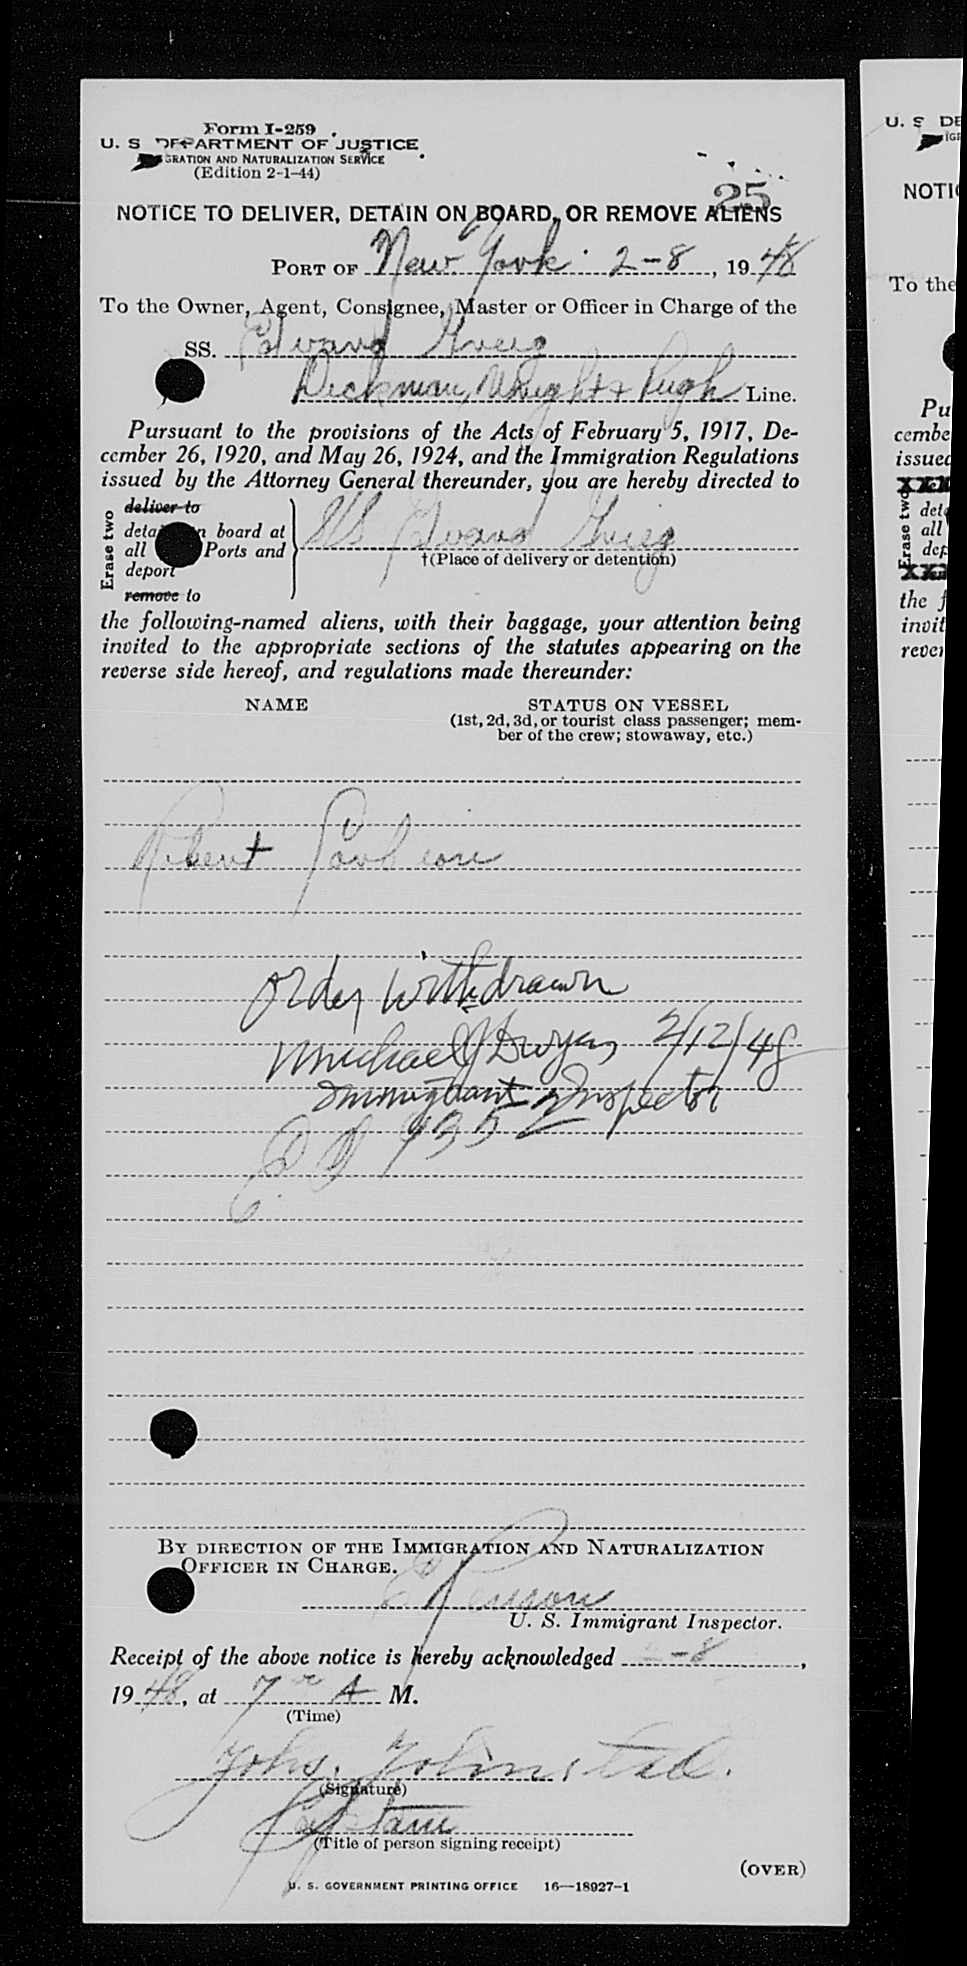 Form I-259
U. S. DEPARTMENT OF JUSTICE
IGRATION AND NATURALIZATION SERVICE
(Edition 2-1-44)
25
NOTICE TO DELIVER, DETAIN ON BOARD, OR REMOVE ALIENS
PORT OF New York 2-8, 1948
To the Owner, Agent, Consignee, Master or Officer in Charge of the
SS. Edvard Grieg
Dickman, Wright & Pugh Line.
Pursuant to the provisions of the Acts of February 5, 1917, De-
cember 26, 1920, and May 26, 1924, and the Immigration Regulations
issued by the Attorney General thereunder, you are hereby directed to
Erase two
deliver to
detain on board at
all Ports and
deport
remove to
SS Edvard Grieg
†(Place of delivery or detention)
the following-named aliens, with their baggage, your attention being
invited to the appropriate sections of the statutes appearing on the
reverse side hereof, and regulations made thereunder:
NAME STATUS ON VESSEL
(1st, 2d, 3d, or tourist class passenger; mem-
ber of the crew; stowaway, etc.)
Robert
Order Withdrawn
Michael J Dwyer 2/12/48
Immigrant Inspector
BY DIRECTION OF THE IMMIGRATION AND NATURALIZATION
OFFICER IN CHARGE.
U. S. Immigrant Inspector.
Receipt of the above notice is hereby acknowledged -8,
1948, at 7 A M.
(Time)
Johs.
(Signature)
Captain
(Title of person signing receipt)
(OVER)
U. S. GOVERNMENT PRINTING OFFICE 16—18927-1
U. S. DE
IGR
NOTI
To the
Pu
cembe
issued
Erase two
deta
all
dep
the f
invit
rever